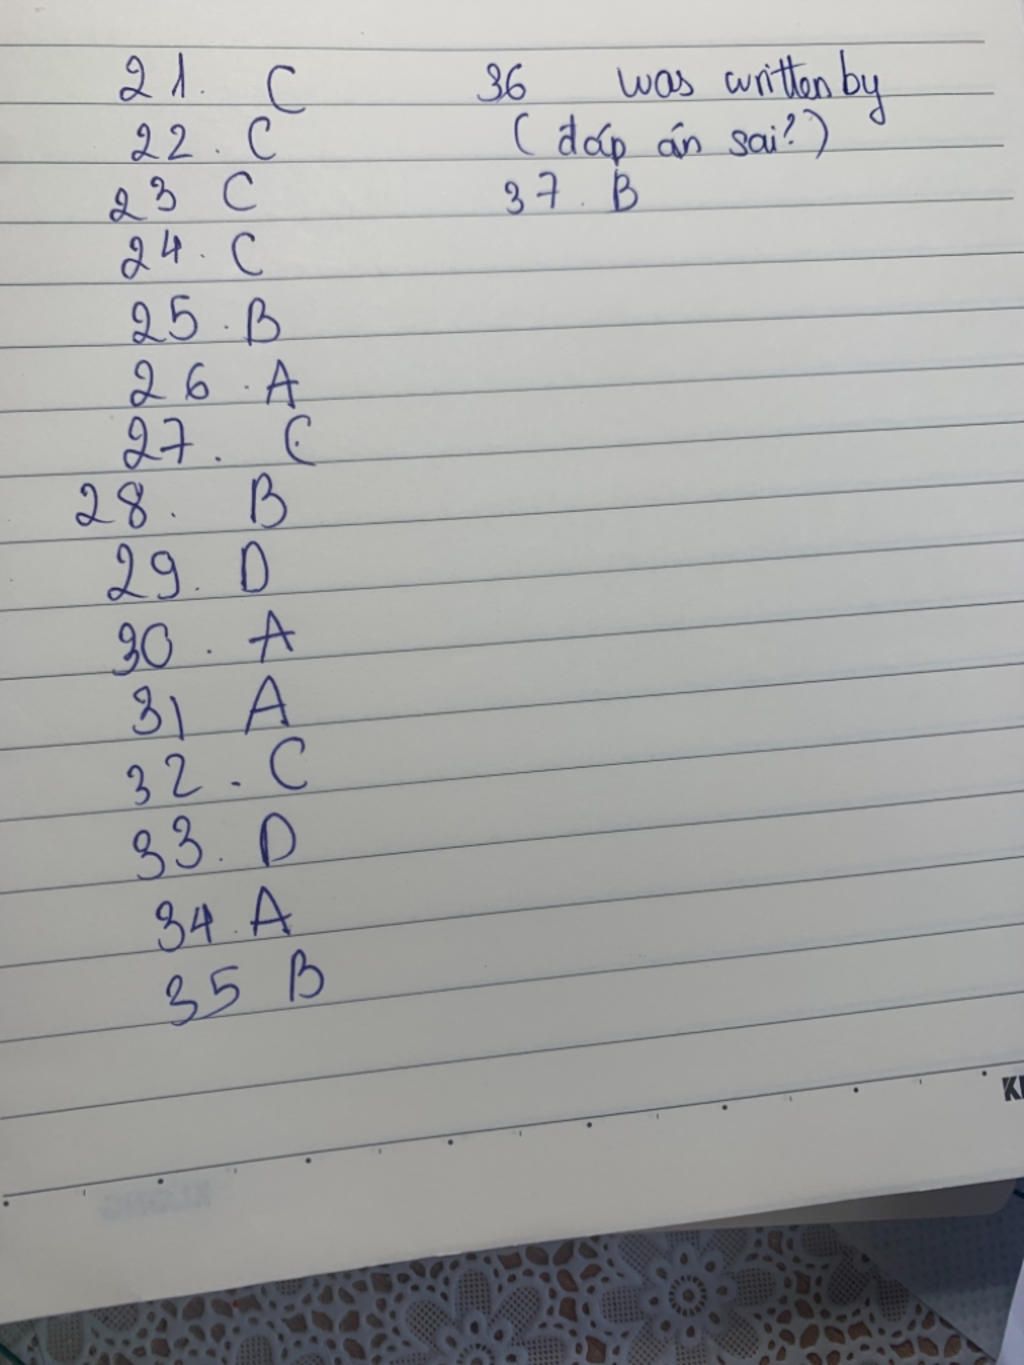 21. C
22. C
23 C
24. C
25. B
26. A
27. C
28. B
29. D
30. A
31 A
32. C
33. D
34. A
35 B
36 was written by
(đáp án sai?)
37. B